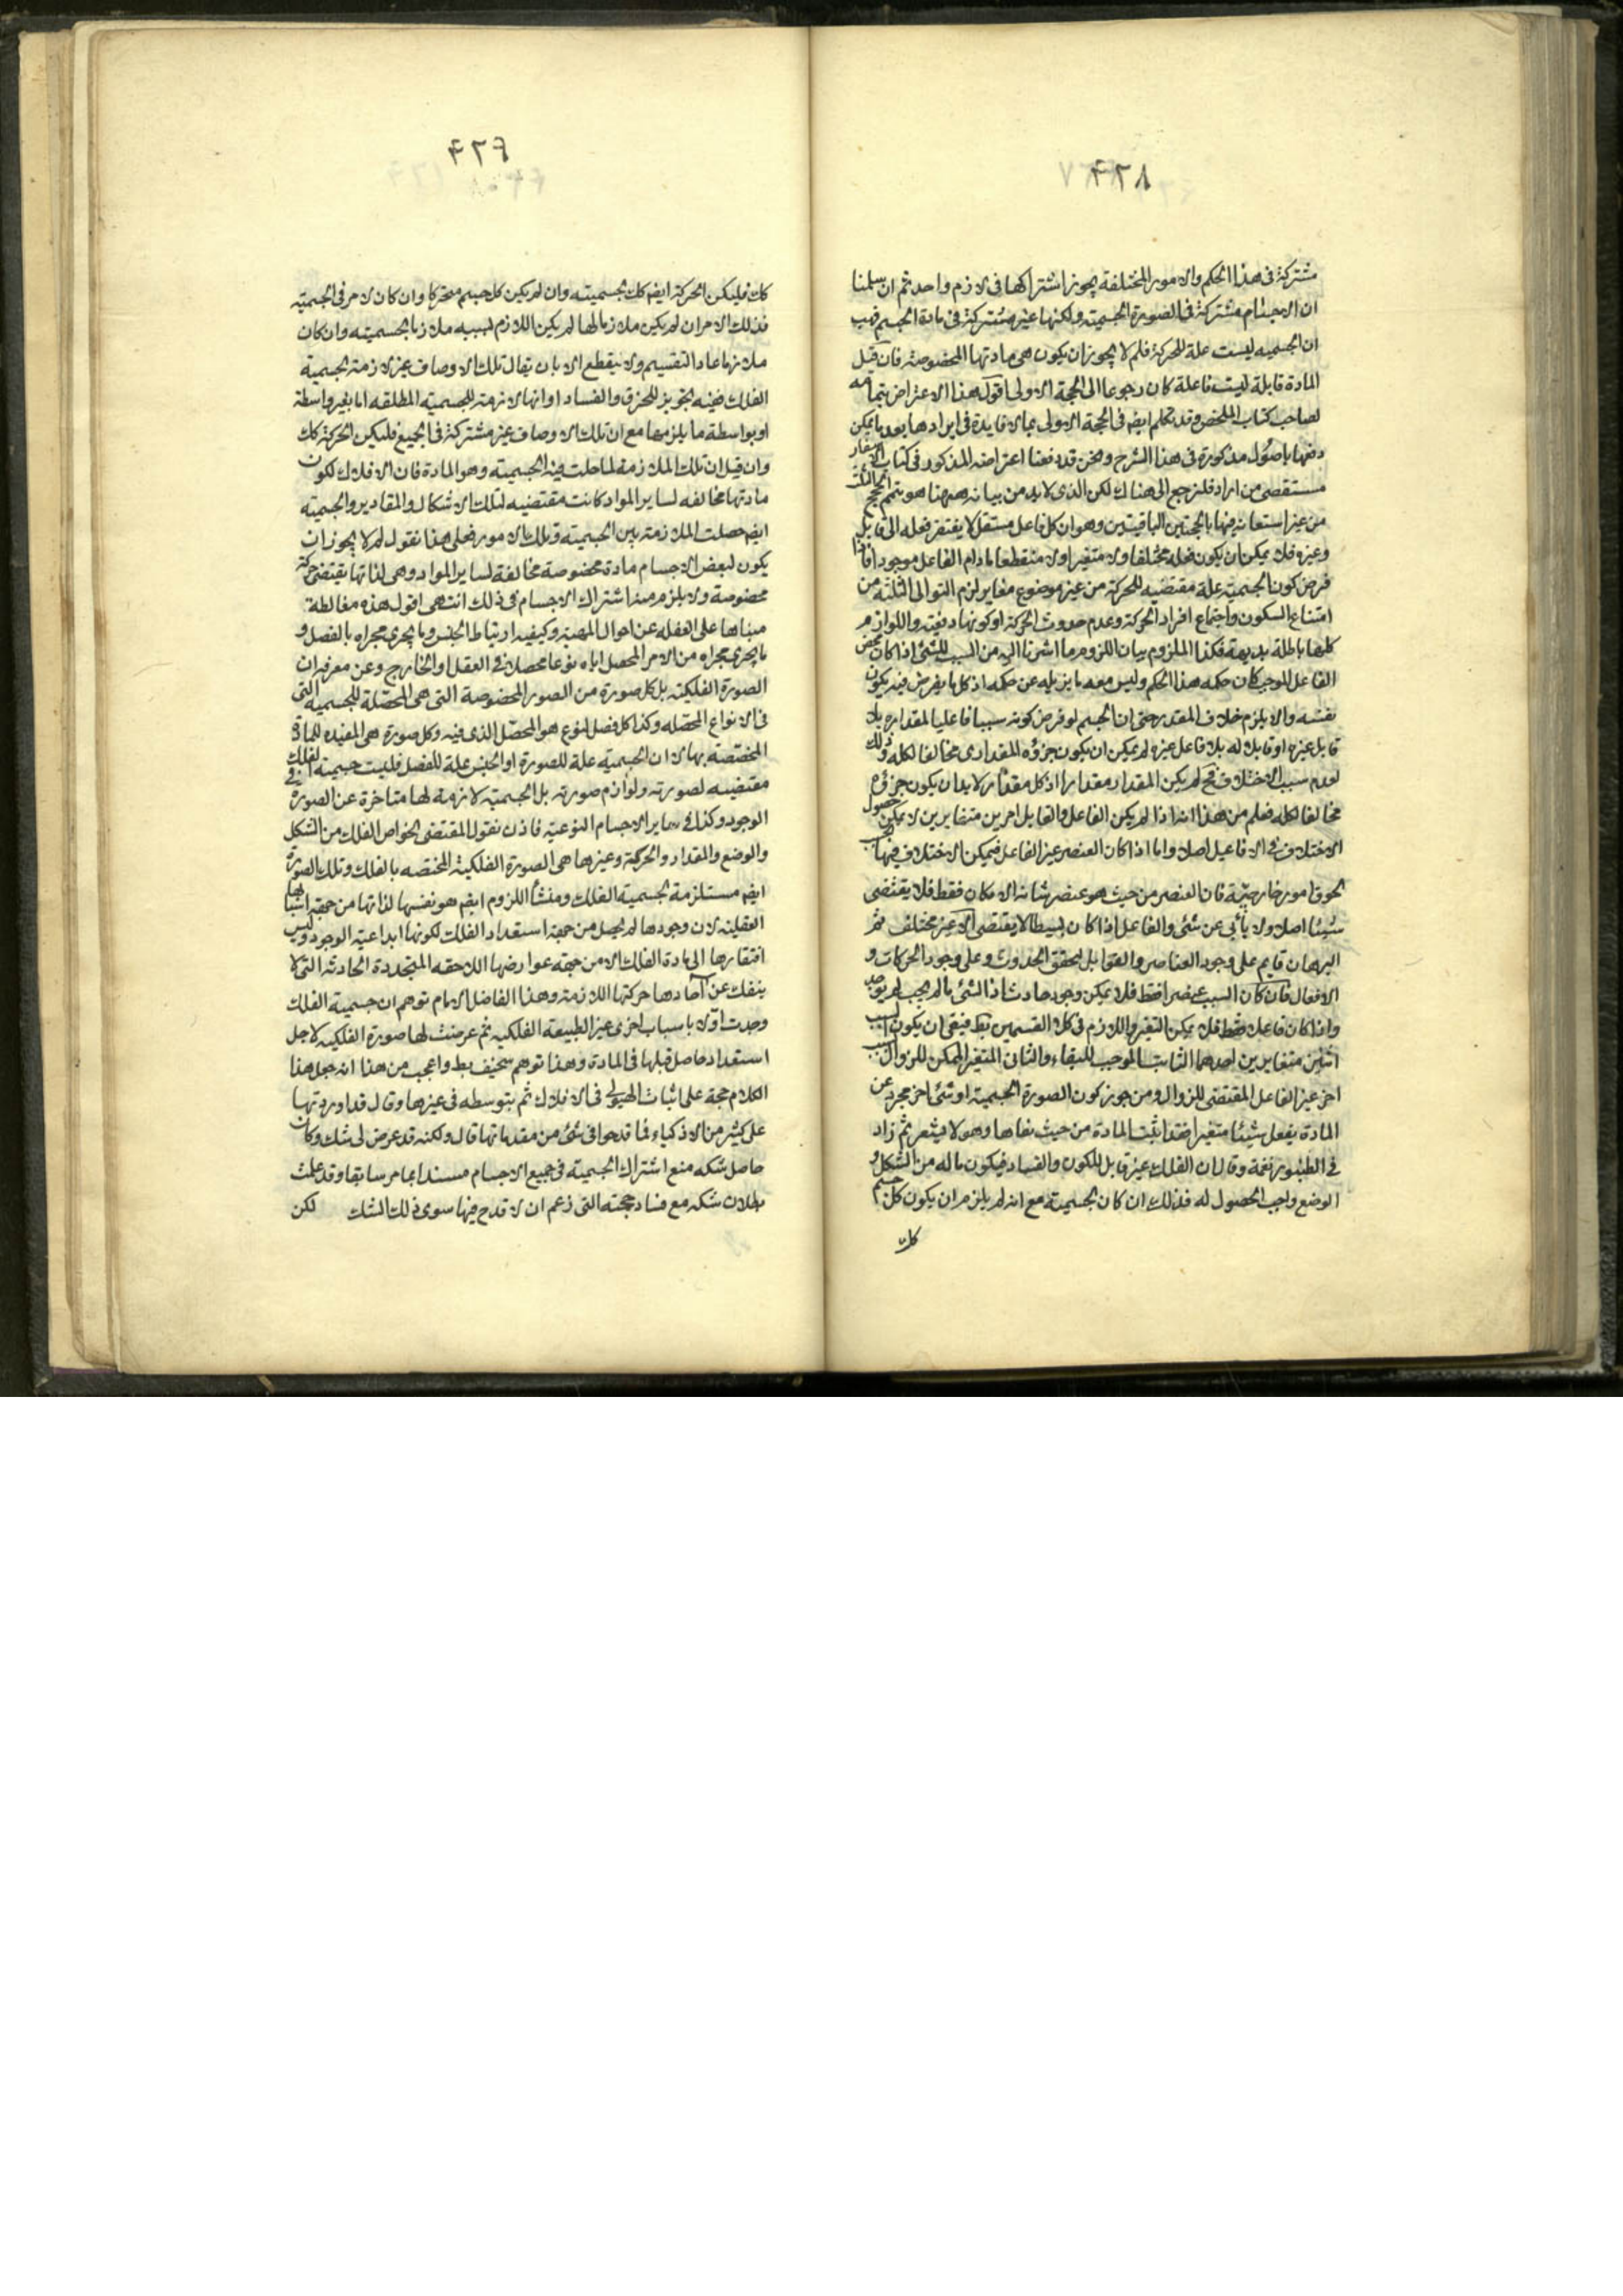 ٤٢٨
مشتركة فى هذا الحكم والامور المختلفة يجوز اشتراكها فى لازم واحد ثم ان سلمنا
ان الاجسام مشتركة فى الصورة الجسمية ولكنها غير مشتركة فى مادة الجسم فهب
ان الجسميه ليست علة للحركة فلم لا يجوز ان يكون هى مادتها المخصوصة فان قيل
المادة قابلة ليست فاعلة كان رجوعا الى الحجة الاولى اقول هذا الاعتراض بتمامه
لصاحب كتاب الملخص وقد تكلم ايضه فى الحجة الاولى بما لا فايدة فى ايرادها بعد ما يمكن
دفعها باصول مذكورة فى هذا الشرح ونحن قد دفعنا اعتراضه المذكور فى كتاب الاسفار
مستقصى من اراد فليرجع الى هناك لكن الذى لا بد من بيانه ههنا هو تتميم الحجج الثلث
من غير استعانه فيها بالحجتين الباقيتين وهو ان كل فاعل مستقل لا يفتقر فعله الى قابل
وغيره فلا يمكن ان يكون فعله مختلفا ولا متغيرا ولا منقطعا ما دام الفاعل موجودا فاذا
فرض كون الجسمية علة مقتضيه للحركة من غير موضوع مغاير لزم التوالى الثلثه من
امتناع السكون واجتماع افراد الحركة وعدم حدوث الحركة او كونها دفعيه واللوازم
كلها باطلة بديهة فكذا الملزوم بيان اللزوم ما اشرنا اليه من السبب للشئ اذا كان محض
الفاعل الموجب كان حكمه هذا الحكم وليس معه ما يزيله عن حكمه اذ كل ما يفرض فيه يكون
نفسه والا يلزم خلاف المقدر حتى ان الجسم لو فرض كونه سببا فاعليا لمقداره بلا
قابل غيره او قابلا له بلا فاعل غيره لم يمكن ان يكون جزؤه المقدارى مخالفا لكله وذلك
لعدم سبب الاختلاف فح لم يكن المقدار مقدارا اذ كل مقدار لا بد ان يكون جزؤه
مخالفا لكله فعلم من هذا انه اذا لم يكن الفاعل والقابل امرين متغايرين لا يمكن حصول
الاختلاف فى الافاعيل اصلا واما اذا كان العنصر غير الفاعل فيمكن الاختلاف فيها
لحوق امور خارجية فان العنصر من حيث هو عنصر شانه الامكان فقط فلا يقتضى
شيئا اصلا ولا يأبى عن شئ والفاعل اذا كان بسيطا لا يقتضى الا غير مختلف ثم
البرهان قايم على وجود العناصر والقوابل لتحقق الحدوث وعلى وجود الحركات و
الافعال فان كان السبب عنصرا فقط فلا يمكن وجود حادث اذ الشئ ما لم يجب لم يوجد
واذا كان فاعلا فقط فلا يمكن التغير واللازم فى كلا القسمين بط فبقى ان يكون السبب
اثنين متغايرين احدهما الثابت الموجب للبقاء والثانى المتغير الممكن للزوال
اخر غير الفاعل المقتضى للزوال ومن جوز كون الصورة الجسمية او شئ اخر مجرد عن
المادة يفعل شيئا متغيرا فقد اثبت المادة من حيث نفاها وهو لا يشعر ثم زاد
فى الطنبور نغمة وقال ان الفلك غير قابل للكون والفساد فيكون ماله من الشكل و
الوضع واجب الحصول له فذلك ان كان لجسمية مع انه لم يلزم ان يكون كل جسم
كك
٤٢٩
كك فليكن الحركة ايضه كك لجسميته وان لم يكن كل جسم متحركا وان كان لامر فى الجسميه
فذلك الامر ان لم يكن ملازما لها لم يكن اللازم لسببه ملازما لجسميته وان كان
ملازما عاد التقسيم ولا ينقطع الا بان يقال تلك الاوصاف غير لازمة لجسمية
الفلك ففيه تجويز للخرق والفساد او انها لازمة للجسمية المطلقه اما بغير واسطة
او بواسطة ما يلزمها مع ان تلك الاوصاف غير مشتركة فى الجميع فليكن الحركة كك
وان قيل ان تلك الملازمة لما حلت فيه الجسمية وهو المادة فان الافلاك لكون
مادتها مخالفه لساير المواد كانت مقتضيه لتلك الاشكال والمقادير والجسميه
ايضه حصلت الملازمة بين الجسمية وتلك الامور فعلى هذا نقول لم لا يجوز ان
يكون لبعض الاجسام مادة مخصوصة مخالفة لساير المواد وهى لذاتها يقتضى حركة
مخصوصة ولا يلزم منه اشتراك الاجسام فى ذلك انتهى اقول هذه مغالطة
مبناها على الغفله عن احوال المهية وكيفيه ارتباط الجنس وما يجرى مجراه بالفصل و
ما يجرى مجراه من الامر المحصل اياه نوعا محصلا فى العقل والخارج وعن معرفه ان
الصورة الفلكية بل كل صورة من الصور المخصوصة التى هى المحصلة للجسمية التى
فى الانواع المحصله وكذا كل فصل لنوع هو المحصل الذى فيه وكل صورة هى المفيده للمادة
المختصه بها لا ان الجسميه علة للصورة او الجنس علة للفصل فليست جسمية الفلك
مقتضيه لصورته ولوازم صورته بل الجسمية لازمة لها متاخرة عن الصورة فى
الوجود وكذا فى ساير الاجسام النوعية فاذن نقول المقتضى لخواص الفلك من الشكل
والوضع والمقدار والحركة وغيرها هى الصورة الفلكية المختصه بالفلك وتلك الصورة
ايضه مستلزمة لجسمية الفلك ومنشأ اللزوم ايضه هو نفسها لذاتها من جهة اسبابها
العقلية لان وجودها لم يحصل من جهة استعداد الفلك لكونها ابداعية الوجود وليس
افتقارها الى مادة الفلك الا من جهة عوارضها اللاحقه المتجددة الحادثة التى لا
ينفك عن آحادها حركتها اللازمة وهذا الفاضل الامام توهم ان جسمية الفلك
وجدت اولا باسباب اخرى غير الطبيعة الفلكية ثم عرضت لها صورة الفلكيه لاجل
استعداد حاصل قبلها فى المادة وهذا توهم سخيف بط واعجب من هذا انه جعل هذا
الكلام حجة على اثبات الهيولى فى الافلاك ثم بتوسطه فى غيرها وقال قد اوردتها
على كثير من الاذكياء فما قدحوا فى شئ من مقدماتها قال ولكنه قد عرض لى شك وكان
حاصل شكه منع اشتراك الجسمية فى جميع الاجسام مسندا بما مر سابقا وقد علمت
بطلان شكه مع فساد حجته التى زعم ان لا قدح فيها سوى ذلك الشك لكن